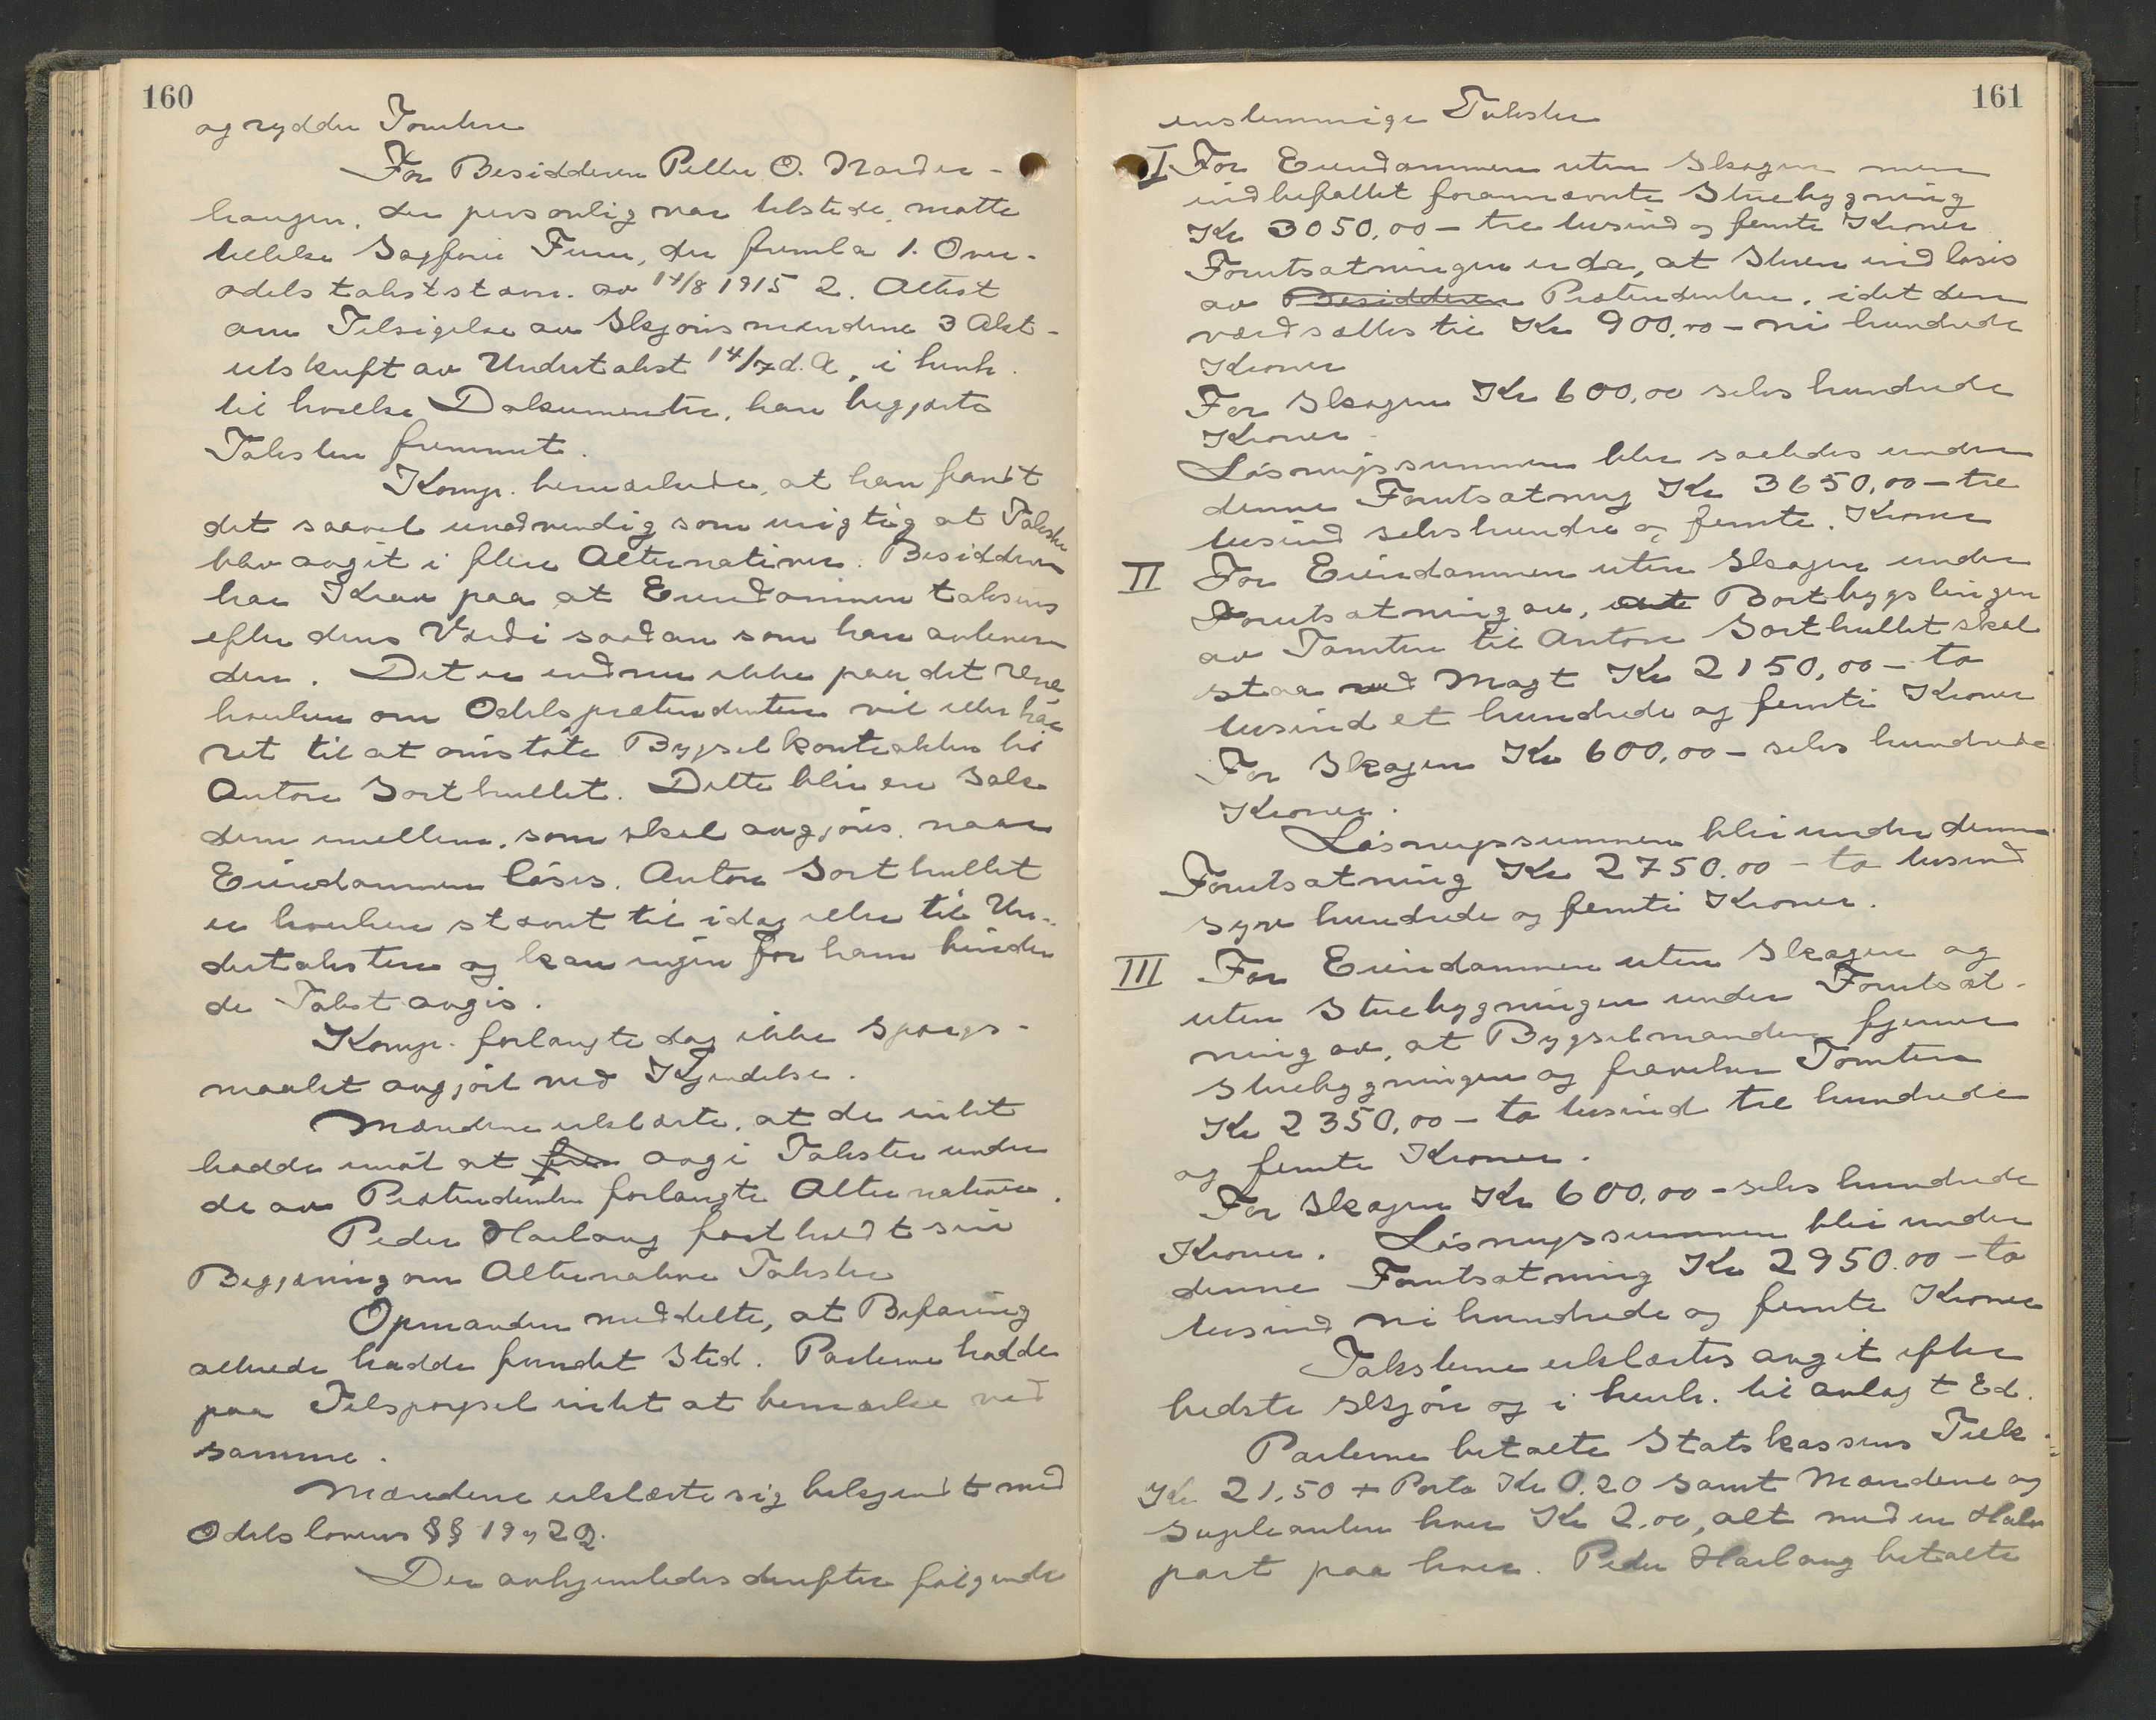 160
og rydder Tomten
For Besidderen Petter O. Norder-
haugen, der personlig var tilstede, møtte
tillike Sagfører Furu, der fremla 1. Over-
odelstakststævn. av 14/8 1915 2. Attest
om Tilsigelse av Skjønsmændene 3 Akt-
utskrift av Undertakst 14/7 d. A, i henh.
til hvilke Dokumenter, han begjærte
Taksten fremmet.
Komp. bemærkede, at han fandt
det saavel unødvendig som urigtig at Takster
blev avgit i flere Alternativer. Besidderen
har Krav paa at Eiendommen takseres
efter dens Værdi saadan som han avleverer
den. Det er endnu ikke paa det rene
hverken om Odelsprætendenten vil eller har
ret til at omstøte Bygselkontrakten til
Anton Sorthullet. Dette blir en Sak
dem imellem, som skal avgjøres, naar
Eiendommen løses. Anton Sorthullet
er hverken stævnt til idag eller til Un-
dertaksten og kan ingen for ham binden
de Takst avgis.
Komp. forlangte dog ikke Spørgs-
maalet avgjort ved Kjendelse.
Mændene erklærte, at de intet
hadde imot at avgi Takster under
de av Prætendenten forlangte Alternativer.
Peder Harlaug fastholdt sin
Begjæring om Alternative Takster
Opmanden meddelte, at Befaring
allerede hadde fundet Sted. Parterne hadde
paa Tilspørgsel intet at bemærke ved
samme.
Mændene erklærte sig bekjendt med
Odelslovens §§ 19 og 20.
Der avhjemledes derefter følgende
161
enstemmige Takster
I For Eiendommen uten Skogen men
indbefattet forannævnte Stuebygning
Kr 3050,00 - tre tusind og femti Kroner
Forutsatningen er da, at Stuen indløses
av Besidderen Prætendenten, idet den
værdsættes til Kr 900,00 - ni hundrede
Kroner
For Skogen Kr 600,00 seks hundrede
Kroner -
Løsningssummen blir saaledes under
denne Forutsatning Kr 3650,00 - tre
tusind sekshundre og femti. Kroner
II For Eiendommen uten Skogen under
Forutsatning av, at Bortbygslingen
av Tomten til Anton Sorthullet skal
staa ved Magt Kr 2150,00 - to
tusind et hundrede og femti Kroner
For Skogen Kr 600,00 - seks hundrede
Kroner.
Løsningssummen blir under denne
Forutsatning Kr 2750.00 - to tusind
syv hundrede og femti Kroner.
III For Eiendommen uten Skogen og
uten Stuebygningen under Forutsat-
ning av, at Bygselmanden fjerner
Stuebygningen og fraviker Tomten
Kr 2350,00 - to tusind tre hundrede
og femti Kroner.
For Skogen Kr 600,00 - seks hundrede
Kroner. Løsningssummen blir under
denne Forutsatning Kr 2950.00 - to
tusind ni hundrede og femti Kroner
Taksterne erklærtes avgit efter
bedste Skjøn og i henh. til avlagt Ed.
Parterne betalte Statskassens Tilk.
Kr 21,50 + Porto Kr 0.20 samt Mændene og
Supleanten hver Kr 2.00, alt med en Halv
part paa hver. Peder Harlaug betalte